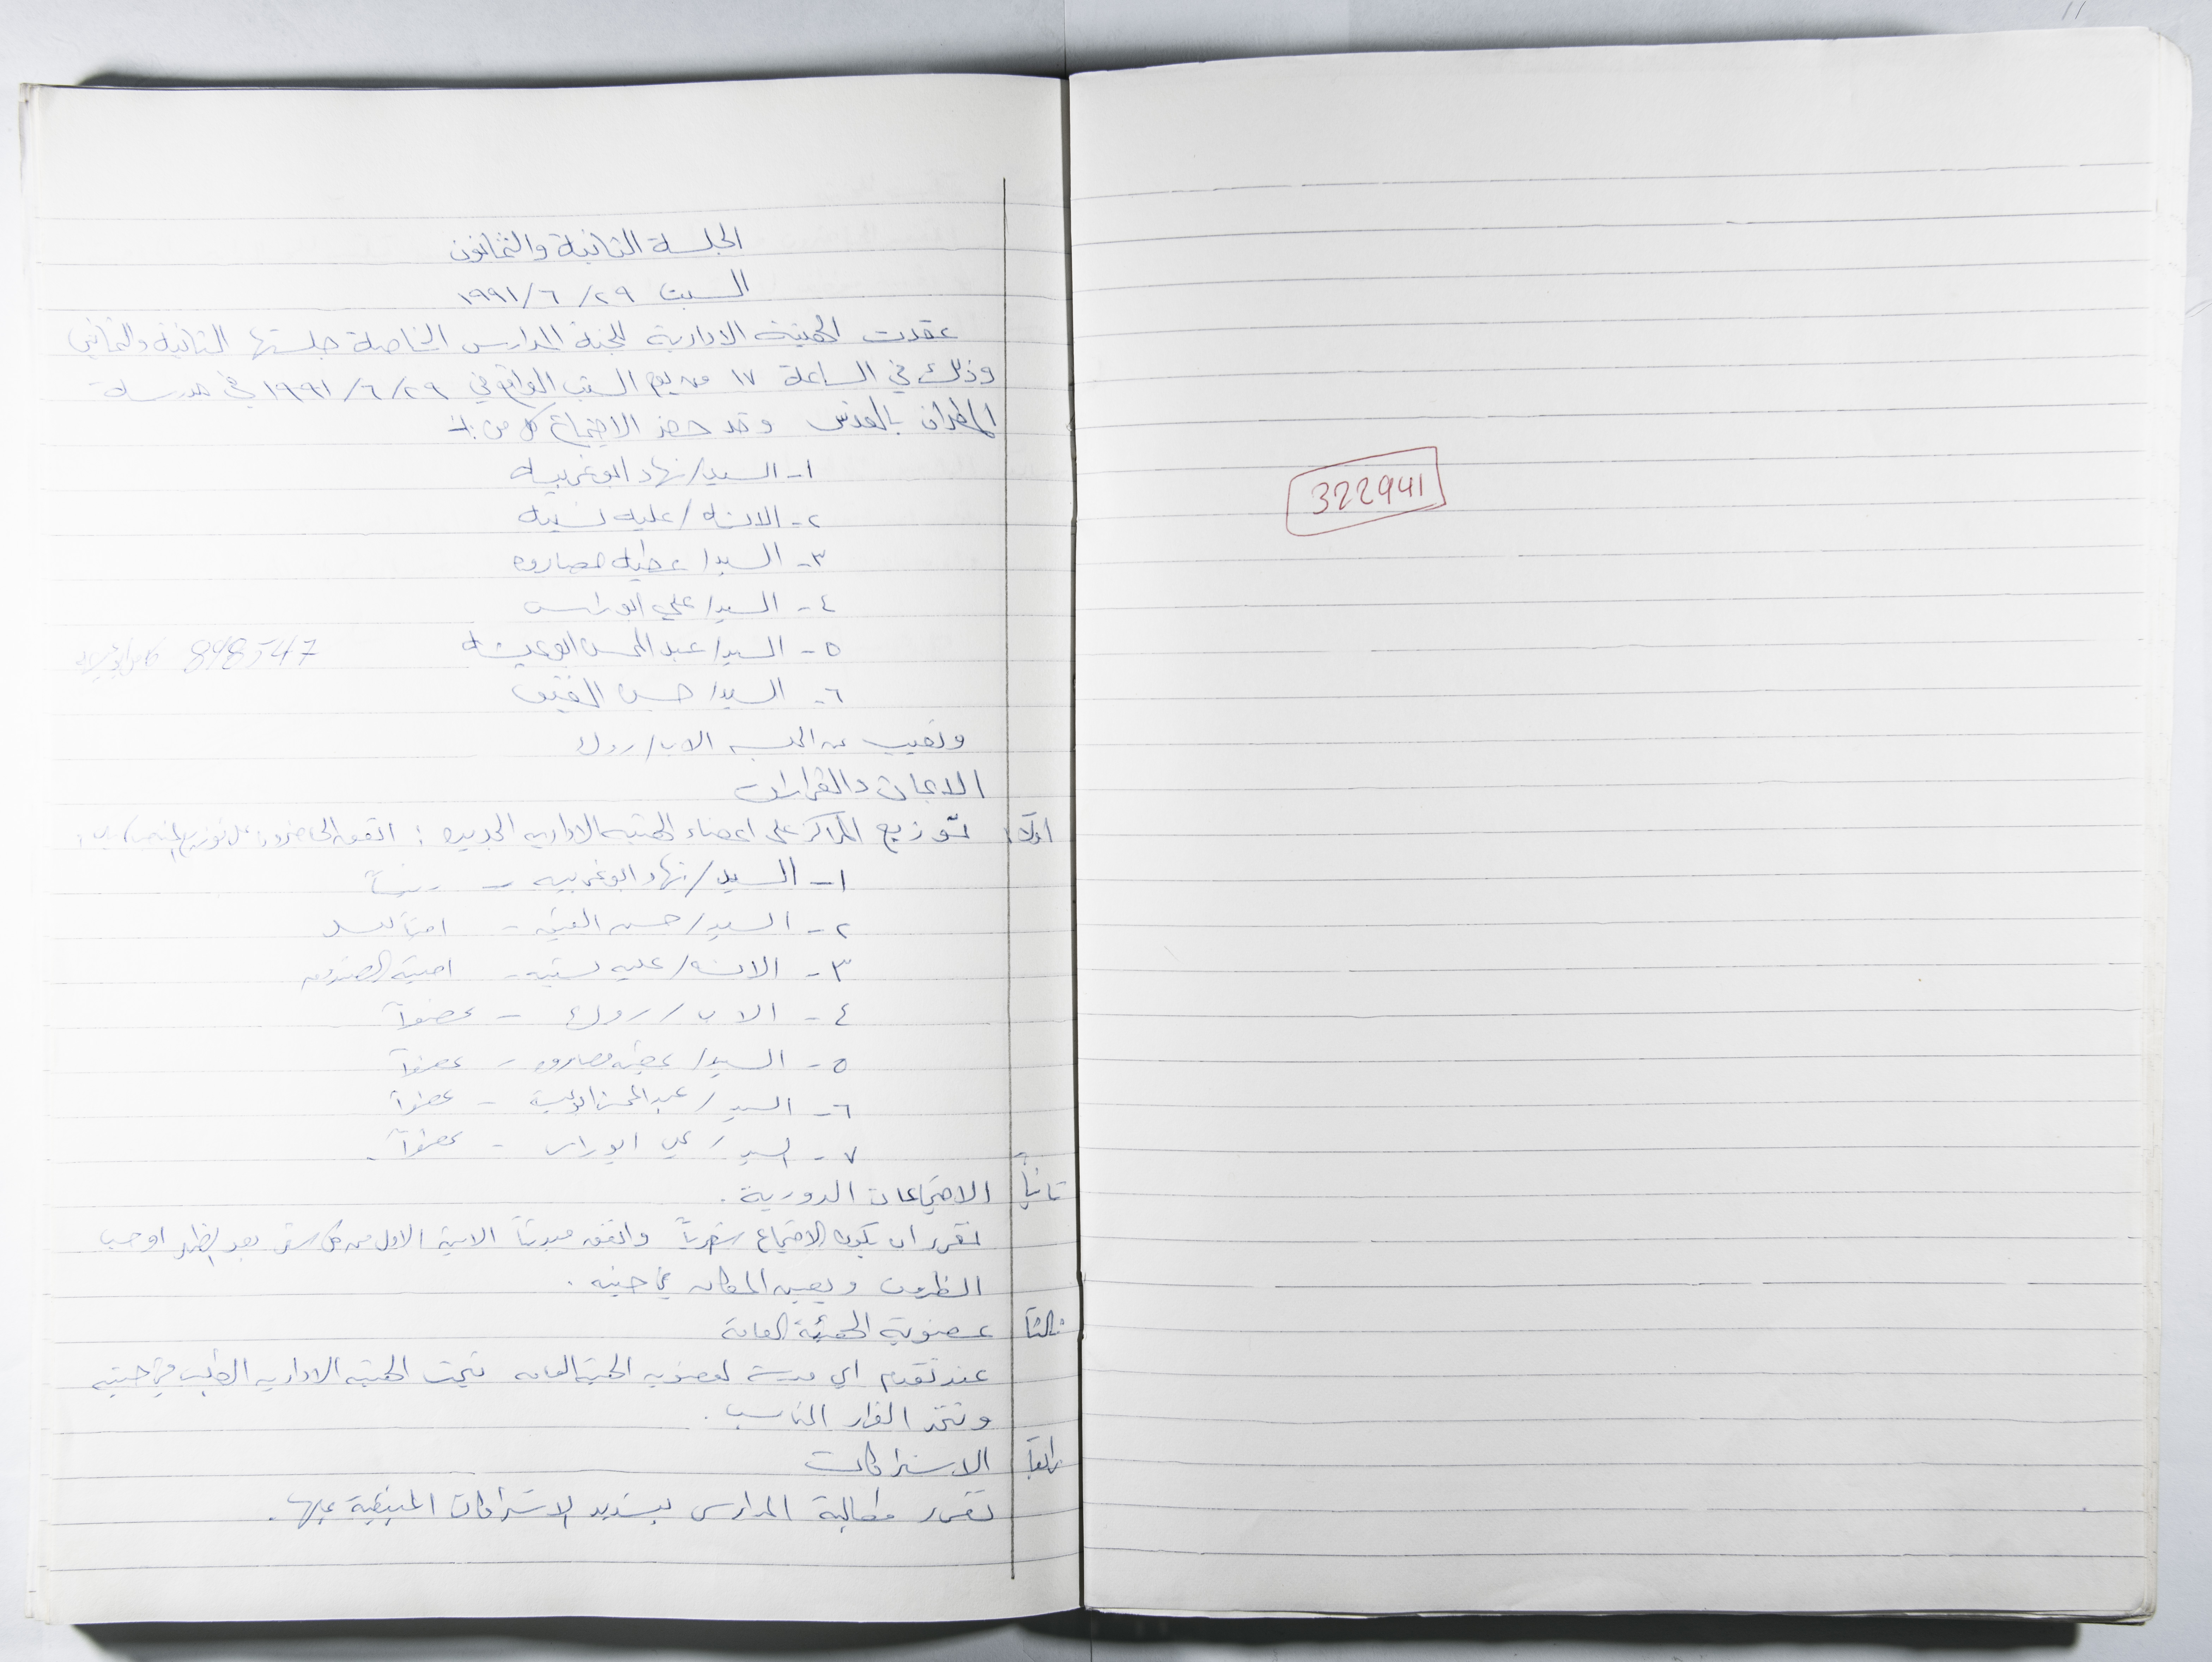 الجلسة الثانية والثمانون
السبت ٢٩/٦/١٩٩١
عقدت الهيئة الادارية للجنة المدارس الخاصة جلستها الثانية والثمانين
وذلك في الساعة ١٧ من يوم السبت الواقع في ٢٩/٦/١٩٩١ في مدرسة
المطران بالقدس وقد حضر الاجتماع كل من :-
١- السيد/ نهاد ابو غربية
٢- الانسة/ عليه نسيبه
٣- السيد/ عطيه مصاروه
٤- السيد/ علي ابو راس
٥- السيد/ عبد المحسن ابو عيشه 848547
٦- السيد/ حسن القيق
وتغيب عن الجلسه الاب/ رؤوف
الابحاث والقرارات
اولا: توزيع المراكز على اعضاء الهيئه الاداريه الجديده : اتفق الحاضرون على توزيع المناصب
١- السيد/ نهاد ابو غربيه - رئيساً
٢- السيد/ حسن القيق - اميناً للسر
٣- الانسه/ عليه نسيبه - امينة الصندوق
٤- الاب/ رؤوف - عضواً
٥- السيد/ عطيه مصاروه - عضواً
٦- السيد/ عبد المحسن ابو عيشة - عضواً
٧- السيد/ علي ابو راس - عضواً.
ثانياً الاجتماعات الدورية .
تقرر ان يكون الاجتماع شهرياً واتفق مبدئياً الاول من كل شهر بعد الظهر او حسب
الظروف ويعين المكان في حينه .
ثالثاً عضوية الهيئة العامة
عند تقدم اي مدرسة لعضويه الهيئة العامه تبحث الهيئه الاداريه الطلب في حينه
وتتخذ القرار المناسب .
رابعاً الاشتراكات
تقرر مطالبة المدارس بتسديد الاشتراكات المتبقية عليها .
322941